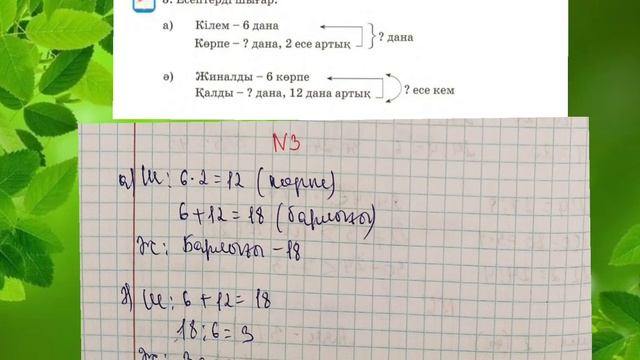 3. Есептерді шығар.
а) Кілем – 6 дана
Көрпе – ? дана, 2 есе артық
? дана
ә) Жиналды – 6 көрпе
Қалды – ? дана, 12 дана артық
? есе кем
N3
а) Ш: 6·2=12 (көрпе)
6+12=18 (барлығы)
Ж: Барлығы –18
ә) Ш: 6+12=18
18:6=3
Ж: